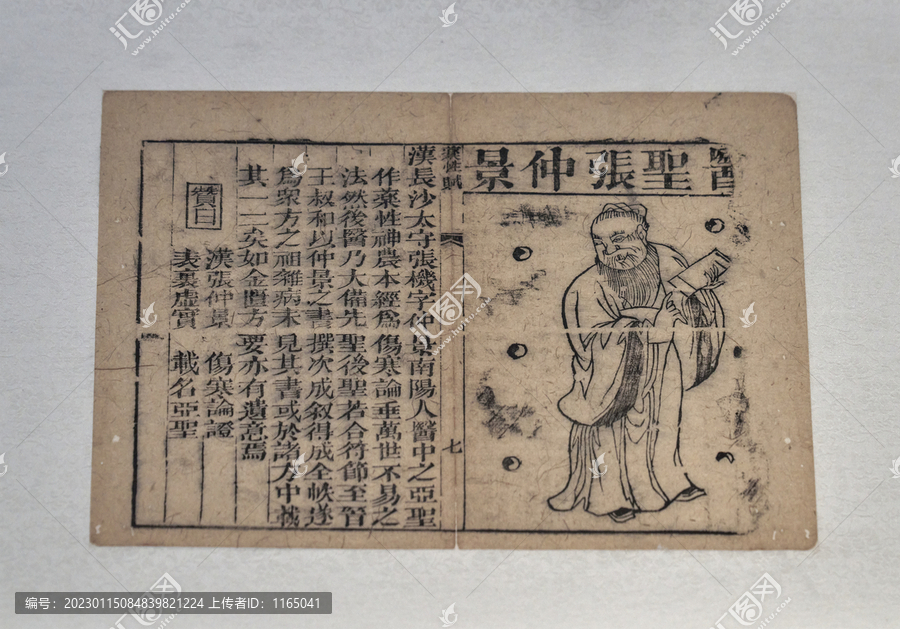 醫聖張仲景
藥性賦
七
漢長沙太守張機字仲景南陽人醫中之亞聖
作藥性神農本經爲傷寒論垂萬世不易之
法然後醫乃大備先聖後聖若合符節至晉
王叔和以仲景之書撰次成敘得成全帙遂
爲衆方之祖雜病未見其書或於諸方中載
其一二矣如金匱方要亦有遺意焉
贊曰
漢張仲景 傷寒論證
表裏虛實 載名亞聖
汇图网
www.huitu.com
编号：20230115084839821224 上传者ID：1165041